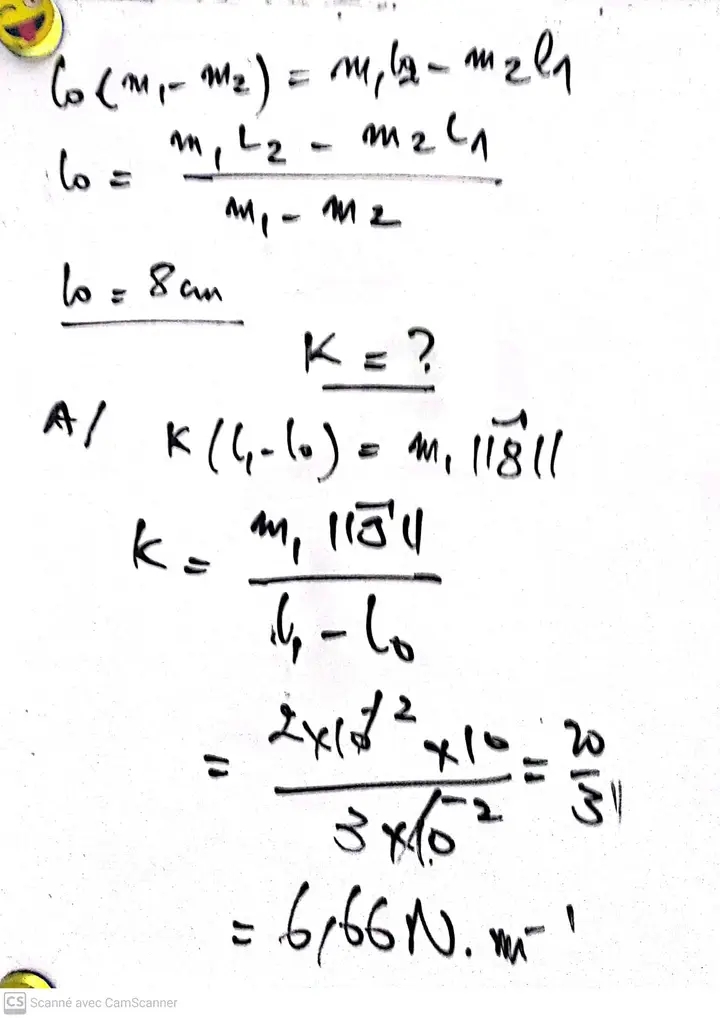 l₀(m₁ - m₂) = m₁l₂ - m₂l₁
l₀ = (m₁L₂ - m₂L₁) / (m₁ - m₂)
l₀ = 8 cm
K = ?
A/ K(l₁ - l₀) = m₁ ||g⃗||
K = m₁ ||g⃗|| / (l₁ - l₀)
= (2×10⁻² × 10) / (3×10⁻²) = 20/3
= 6,66 N.m⁻¹
CS Scanné avec CamScanner